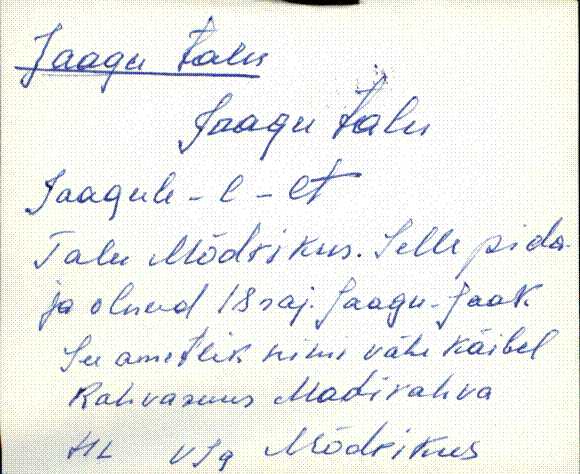 Jaagu talu
Jaagu talu
Jaagule - l - lt
Talu Mõdrikus. Selle pida-
ja olnud 18 saj. Jaagu-Jaak
See ametlik nimi vähe käibel
Rahvasuus Madirahva
HL VJg Mõdrikus